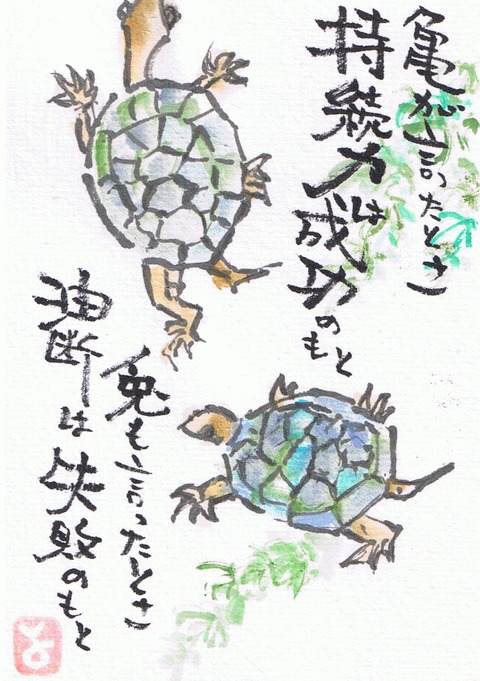 亀が言ったとさ
持続力は成功のもと
兎も言ったとさ
油断は失敗のもと